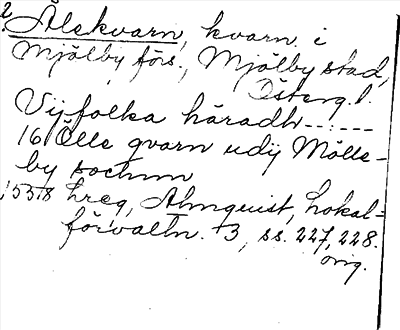 2. Ålekvarn, kvarn i
Mjölby förs., Mjölby stad,
Österg. l.
Vijfolka häradh------
16 Ölle qvarn udij Mölle-
by sochnn
1538 hreg, Almquist, Lokal-
förvaltn. 3, ss. 227, 228.
orig.